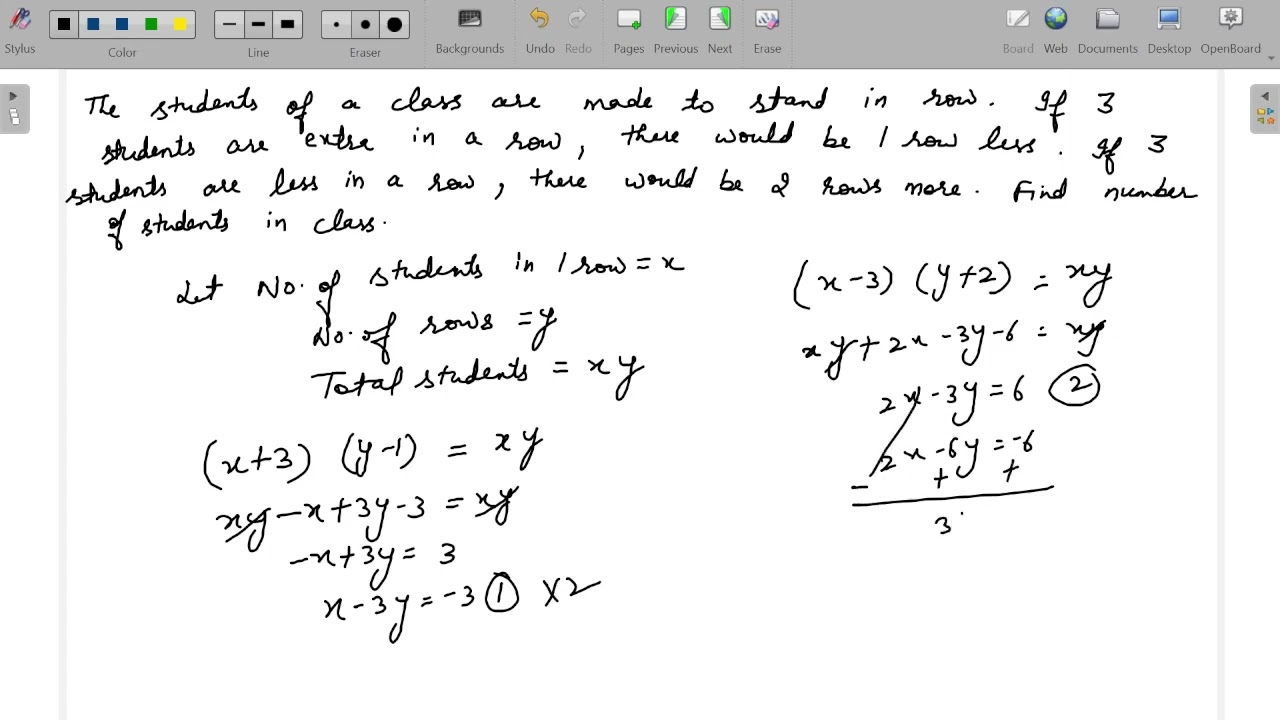 Stylus
Color
Line
Eraser
Backgrounds
Undo
Redo
Pages
Previous
Next
Erase
Board
Web
Documents
Desktop
OpenBoard
The students of a class are made to stand in row. If 3
students are extra in a row, there would be 1 row less. If 3
students are less in a row, there would be 2 rows more. Find number
of students in class.
Let No. of students in 1 row = x
No. of rows = y
Total students = xy
(x+3) (y-1) = xy
xy - x + 3y - 3 = xy
-x + 3y = 3
x - 3y = -3 ① ×2
(x-3) (y+2) = xy
xy + 2x - 3y - 6 = xy
2x - 3y = 6 ②
2x - 6y = -6
- + +
3